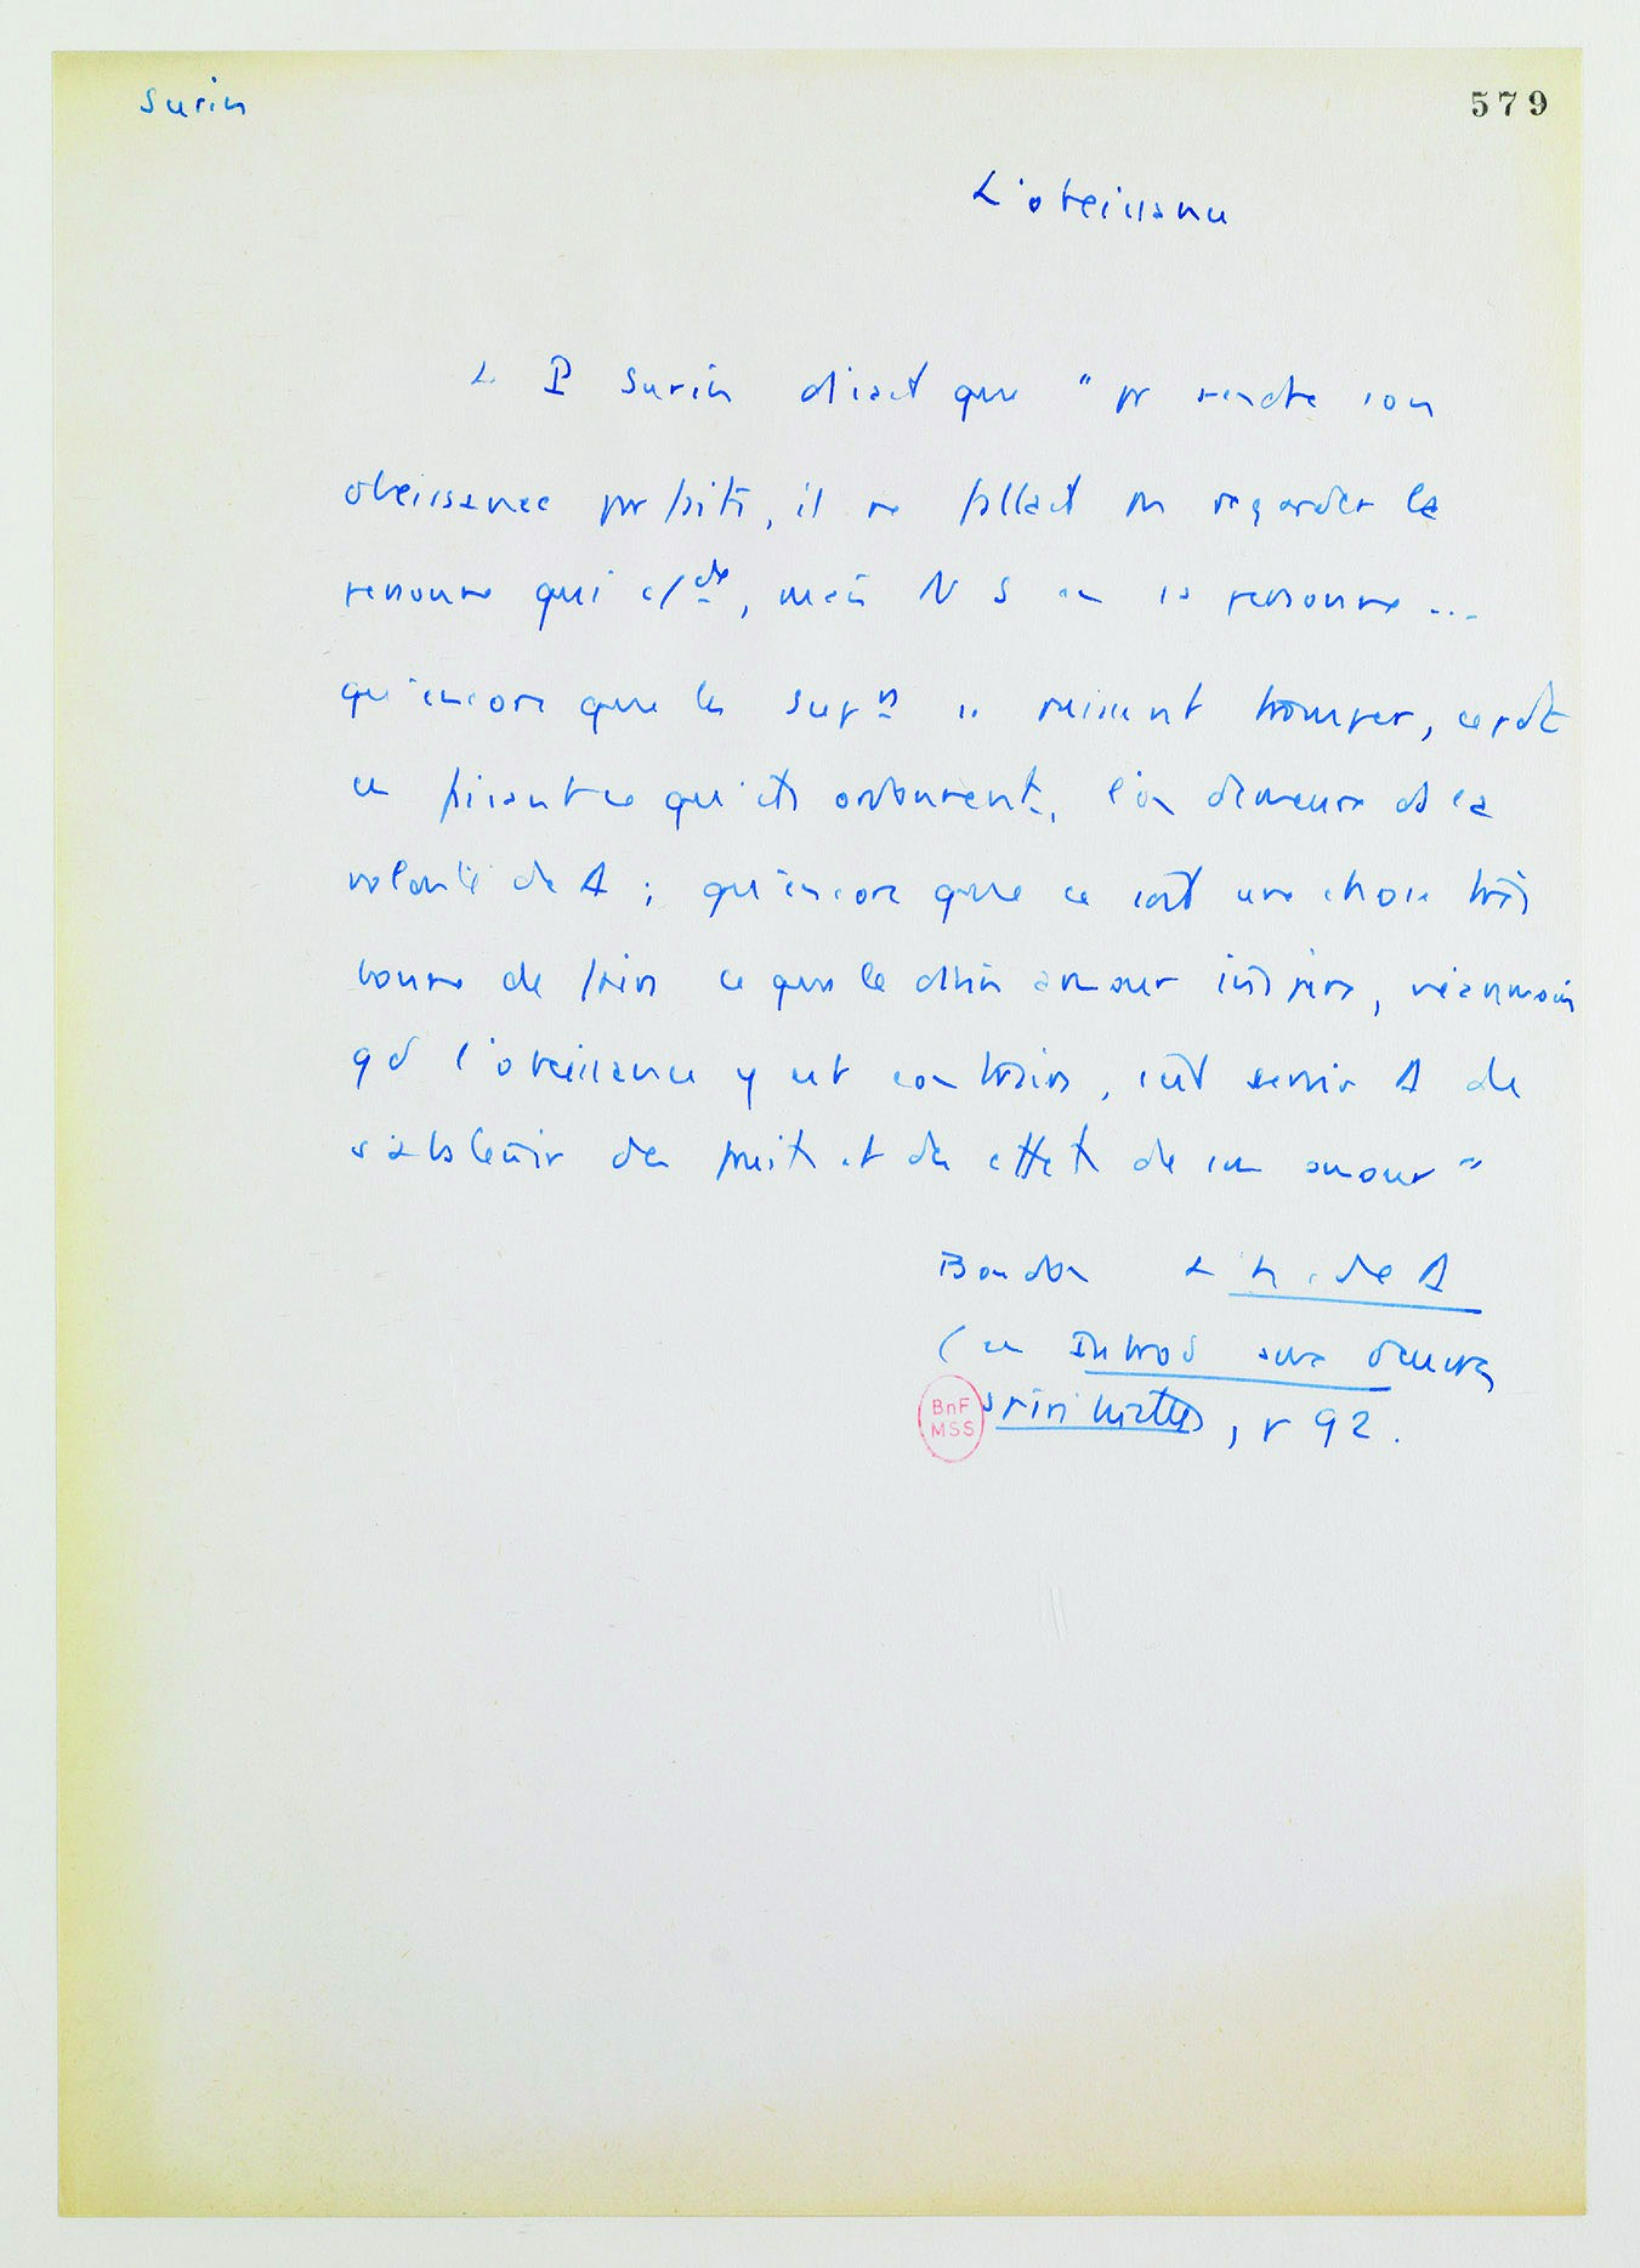 Surin
579
L'obeissance
Le P Surin disait que " pr rendre son
obeissance parfaite, il ne fallait pas regarder la
personne qui cde, mais N S en sa personne ...
qu'encore que les suprs se puissent tromper, cepdt
en faisant ce qu'ils ordonnent, l'on demeure ds la
volonté de ; qu'encore que ce soit une chose très
bonne de faire ce que le divin amour inspire, néanmoins
qd l'obeissance y est contraire, c'est servir de
s'abstenir des fruits et des effets de son amour "
Boudon L'h. de
(in Introd aux œuvres
spirituelles, p 92.
BnF
MSS